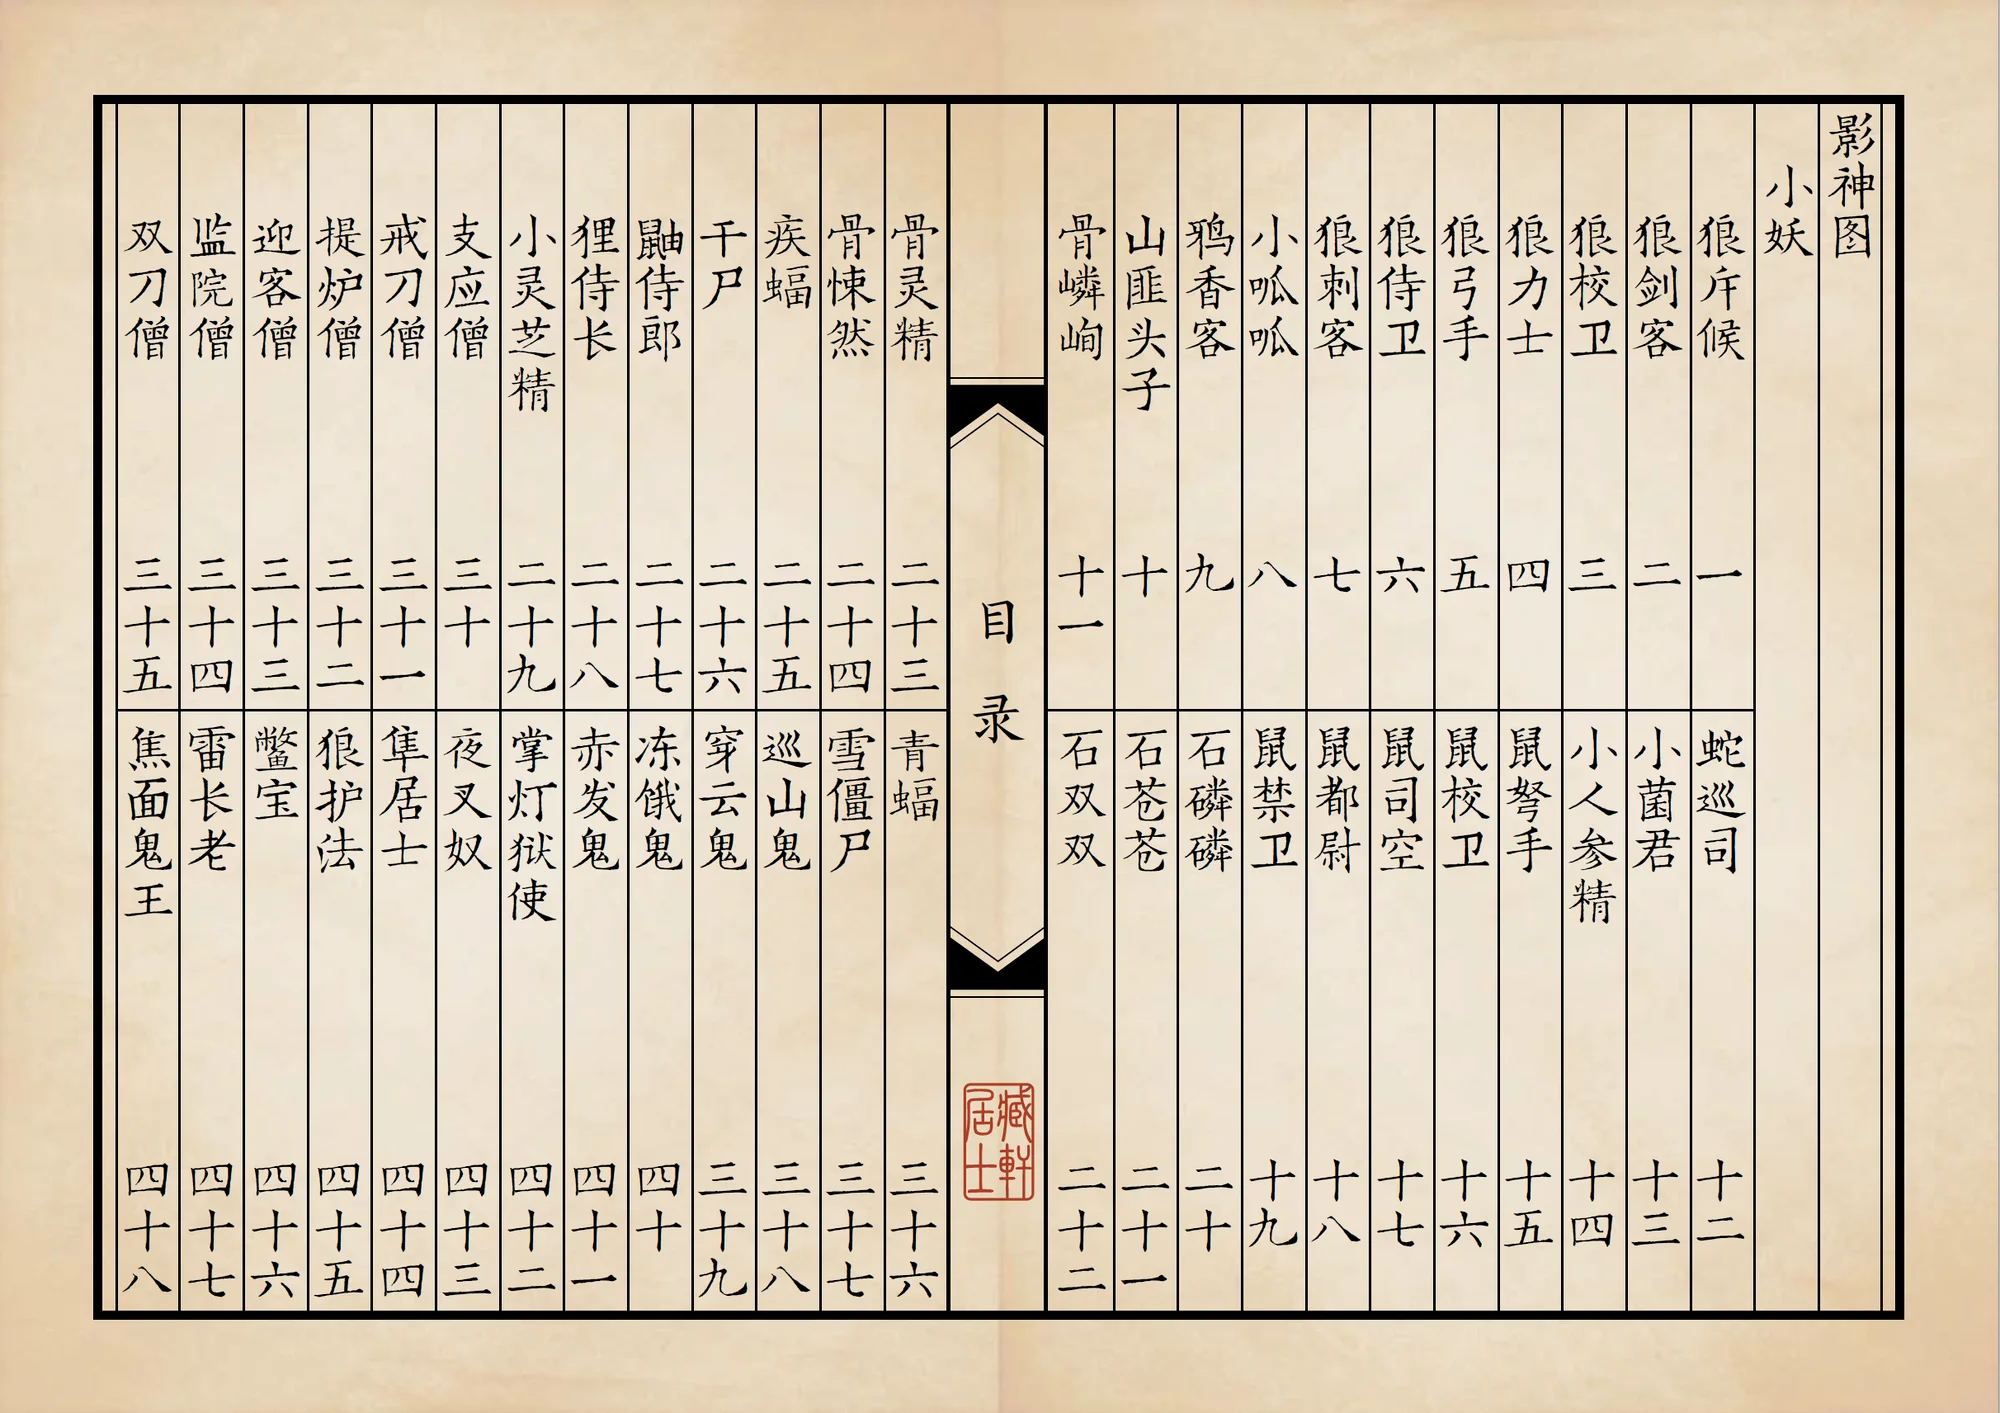 影神图
小妖
狼斥候 一
狼剑客 二
狼校卫 三
狼力士 四
狼弓手 五
狼侍卫 六
狼刺客 七
小呱呱 八
鸦香客 九
山匪头子 十
骨嶙峋 十一
蛇巡司 十二
小菌君 十三
小人参精 十四
鼠弩手 十五
鼠校卫 十六
鼠司空 十七
鼠都尉 十八
鼠禁卫 十九
石磷磷 二十
石苍苍 二十一
石双双 二十二
目录
藏軒居士
骨灵精 二十三
骨悚然 二十四
疾蝠 二十五
干尸 二十六
鼬侍郎 二十七
狸侍长 二十八
小灵芝精 二十九
支应僧 三十
戒刀僧 三十一
提炉僧 三十二
迎客僧 三十三
监院僧 三十四
双刀僧 三十五
青蝠 三十六
雪僵尸 三十七
巡山鬼 三十八
穿云鬼 三十九
冻饿鬼 四十
赤发鬼 四十一
掌灯狱使 四十二
夜叉奴 四十三
隼居士 四十四
狼护法 四十五
鳖宝 四十六
雷长老 四十七
焦面鬼王 四十八